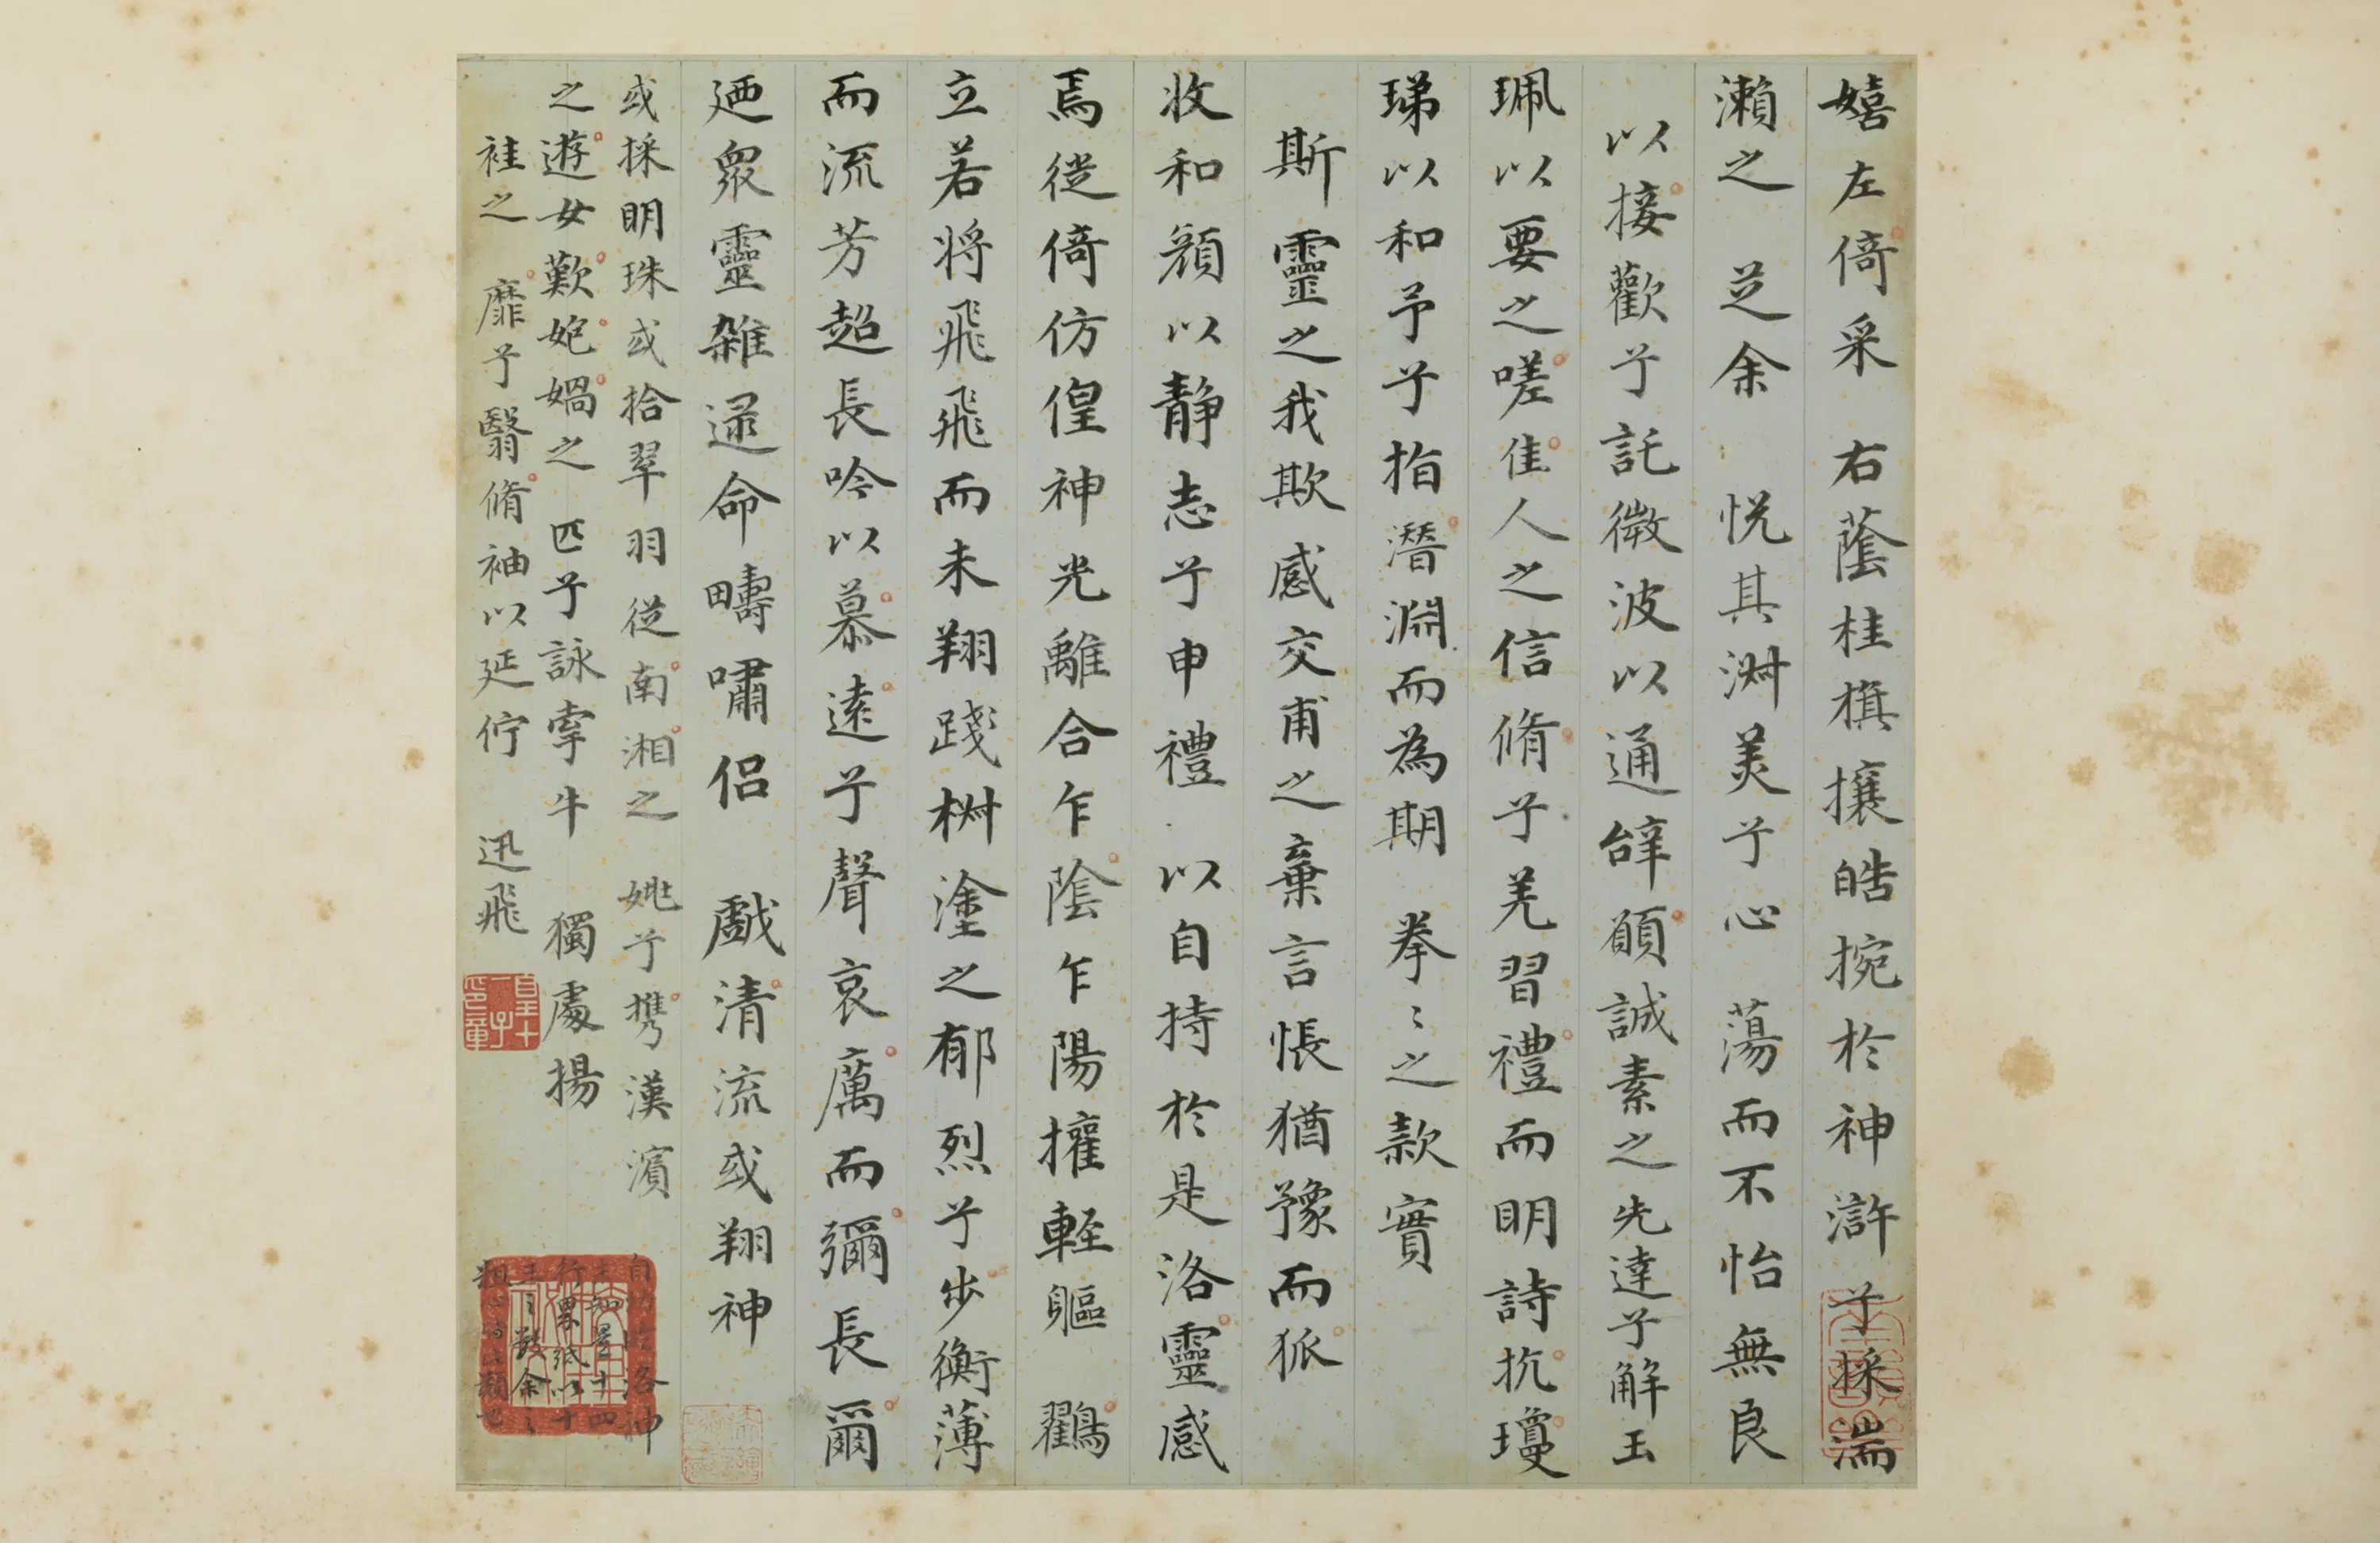 嬉左倚采右蔭桂旗攘皓捥於神滸兮採湍
瀨之芝余悦其淋美兮心蕩而不怡無良
以接歡兮託微波以通辝願誠素之先達兮解玉
珮以要之嗟佳人之信脩兮羌習禮而明詩抗瓊
珶以和予兮指潛淵而為期拳〻之款實
斯靈之我欺感交甫之棄言悵猶豫而狐
收和顏以静志兮申禮以自持於是洛靈感
焉徙倚仿偟神光離合乍陰乍陽擢輕軀鸛
立若将飛飛而未翔踐椒塗之郁烈兮步衡薄
而流芳超長吟以慕遠兮聲哀厲而彌長爾
廼衆靈雜遝命疇嘯侣戲清流或翔神
或採明珠或拾翠羽從南湘之姚兮攜漢濱
之遊女歎妑媧之匹兮詠牽牛獨處揚
袿之靡兮翳脩袖以延佇迅飛
皇十一子印章